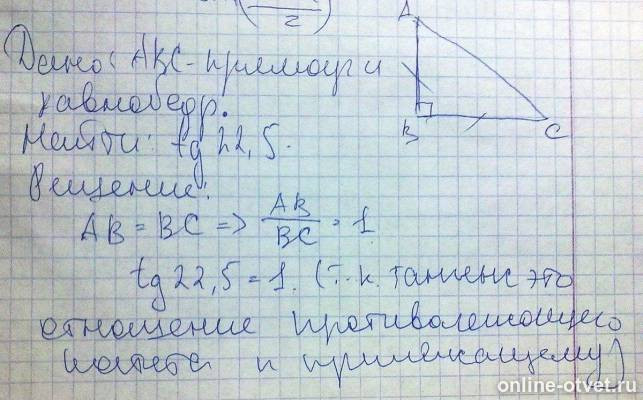 2
A
Дано: ABC - прямоуг и
равнобедр.
B
C
Найти: tg 22,5.
Решение:
AB = BC => AB/BC = 1
tg 22,5 = 1. (т.к. тангенс это
отношение противолежащего
катета к прилежащему)
online-otvet.ru